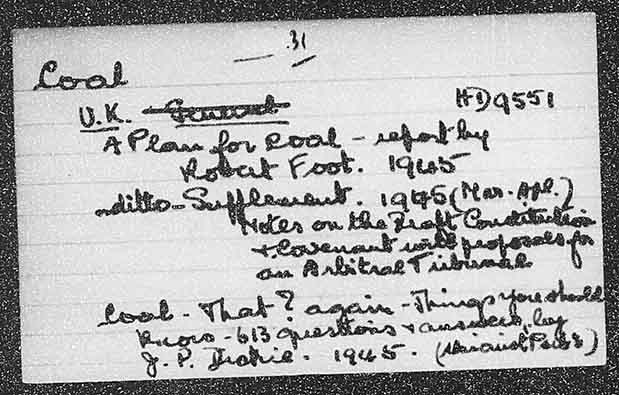 31
Coal
U.K. General HD9551
A Plan for Coal - report by
Robert Foot. 1945
-ditto- Supplement. 1945 (Mar.-Apl.)
Notes on the Draft Constitution
& Covenant with proposals for
an Arbitral Tribunal
Coal - That? again - Things you should
Know - 613 questions & answers, by
J. P. 1945.